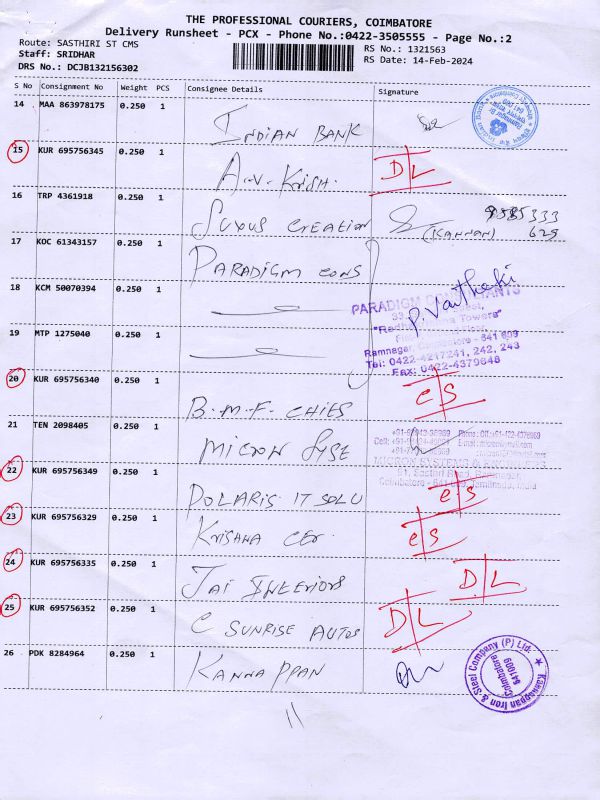 THE PROFESSIONAL COURIERS, COIMBATORE
Delivery Runsheet - PCX - Phone No.:0422-3505555 - Page No.:2
Route: SASTHIRI ST CMS
RS No.: 1321563
Staff: SRIDHAR
RS Date: 14-Feb-2024
DRS No.: DCJB132156302
S No Consignment No Weight PCS Consignee Details Signature
14 MAA 863978175 0.250 1
INDIAN BANK
15 KUR 695756345 0.250 1
A.V. Krish. D/L
16 TRP 4361918 0.250 1
SUXUS CREATION
(KANNAN)
625
17 KOC 61343157 0.250 1
PARADIGM CONS
18 KCM 50070394 0.250 1
P. Vanthaki
PARADIGM
Towers"
19 MTP 1275040 0.250 1
Ramnagar, Coimbatore - 641 009
Tel: 0422-4217241, 242, 243
Fax: 0422-4379648
20 KUR 695756340 0.250 1
B.M.F. CHIES e/s
21 TEN 2098405 0.250 1
MICRON SYSE
22 KUR 695756349 0.250 1
POLARIS IT SOLU e/s
23 KUR 695756329 0.250 1
KRISHNA CER. e/s
24 KUR 695756335 0.250 1
JAI INTERIORS D/L
25 KUR 695756352 0.250 1
C SUNRISE AUTOS D/L
26 PDK 8284964 0.250 1
KANNAPPAN
Kannappan Iron & Steel Company (P) Ltd.
Coimbatore
641009